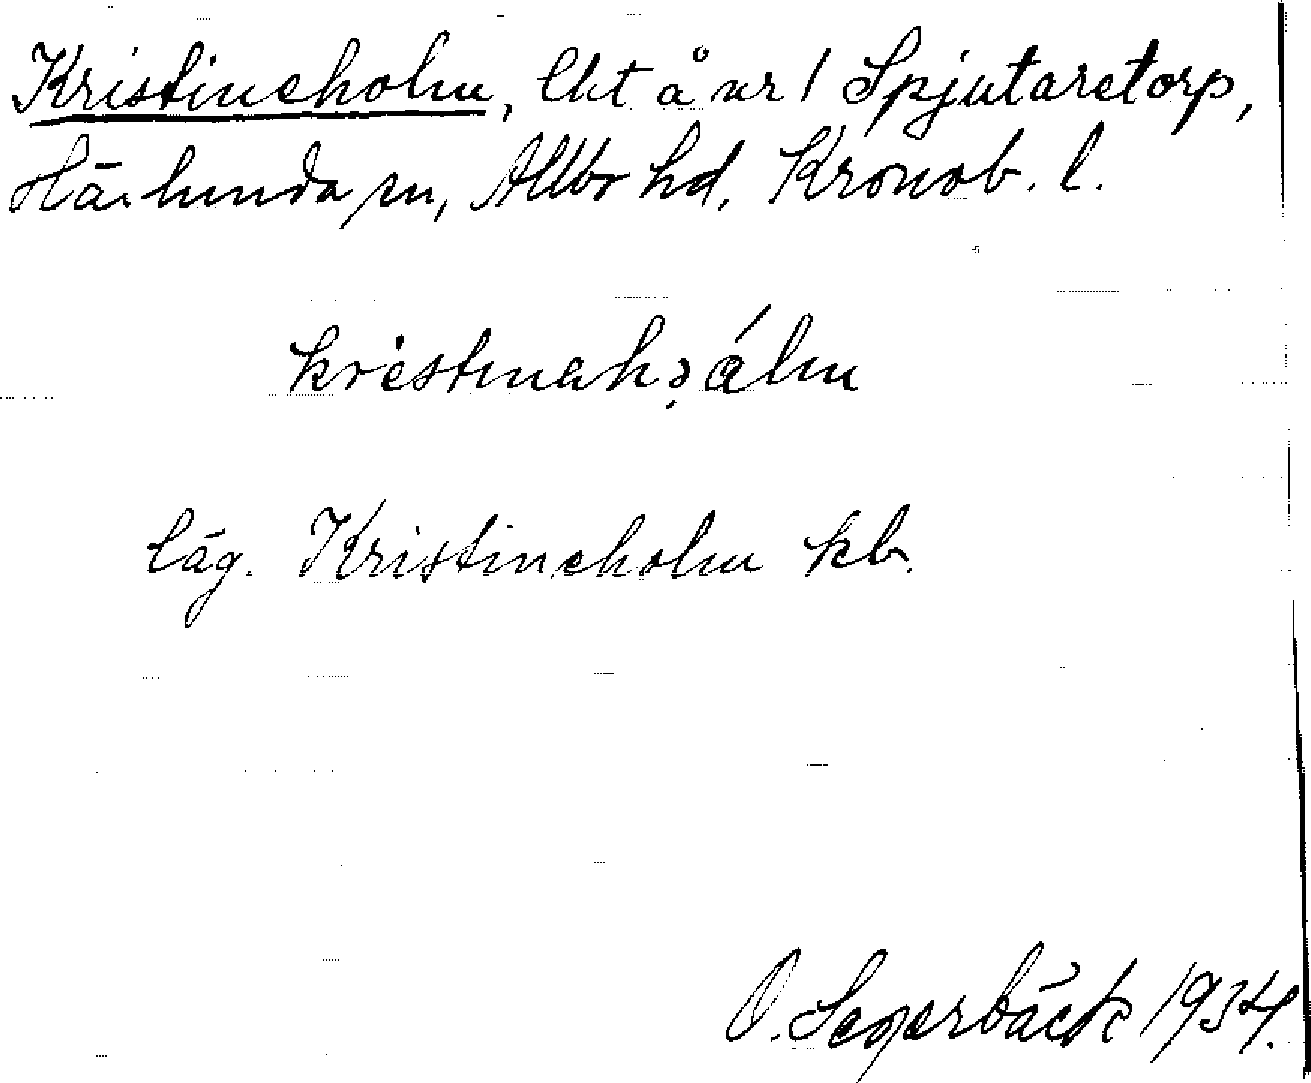 Kristineholm, lht å nr 1 Spjutaretorp,
Härlunda sn, Allbo hd, Kronob. l.
låg. Kristineholm kb.
O. Segerbäck 1934.